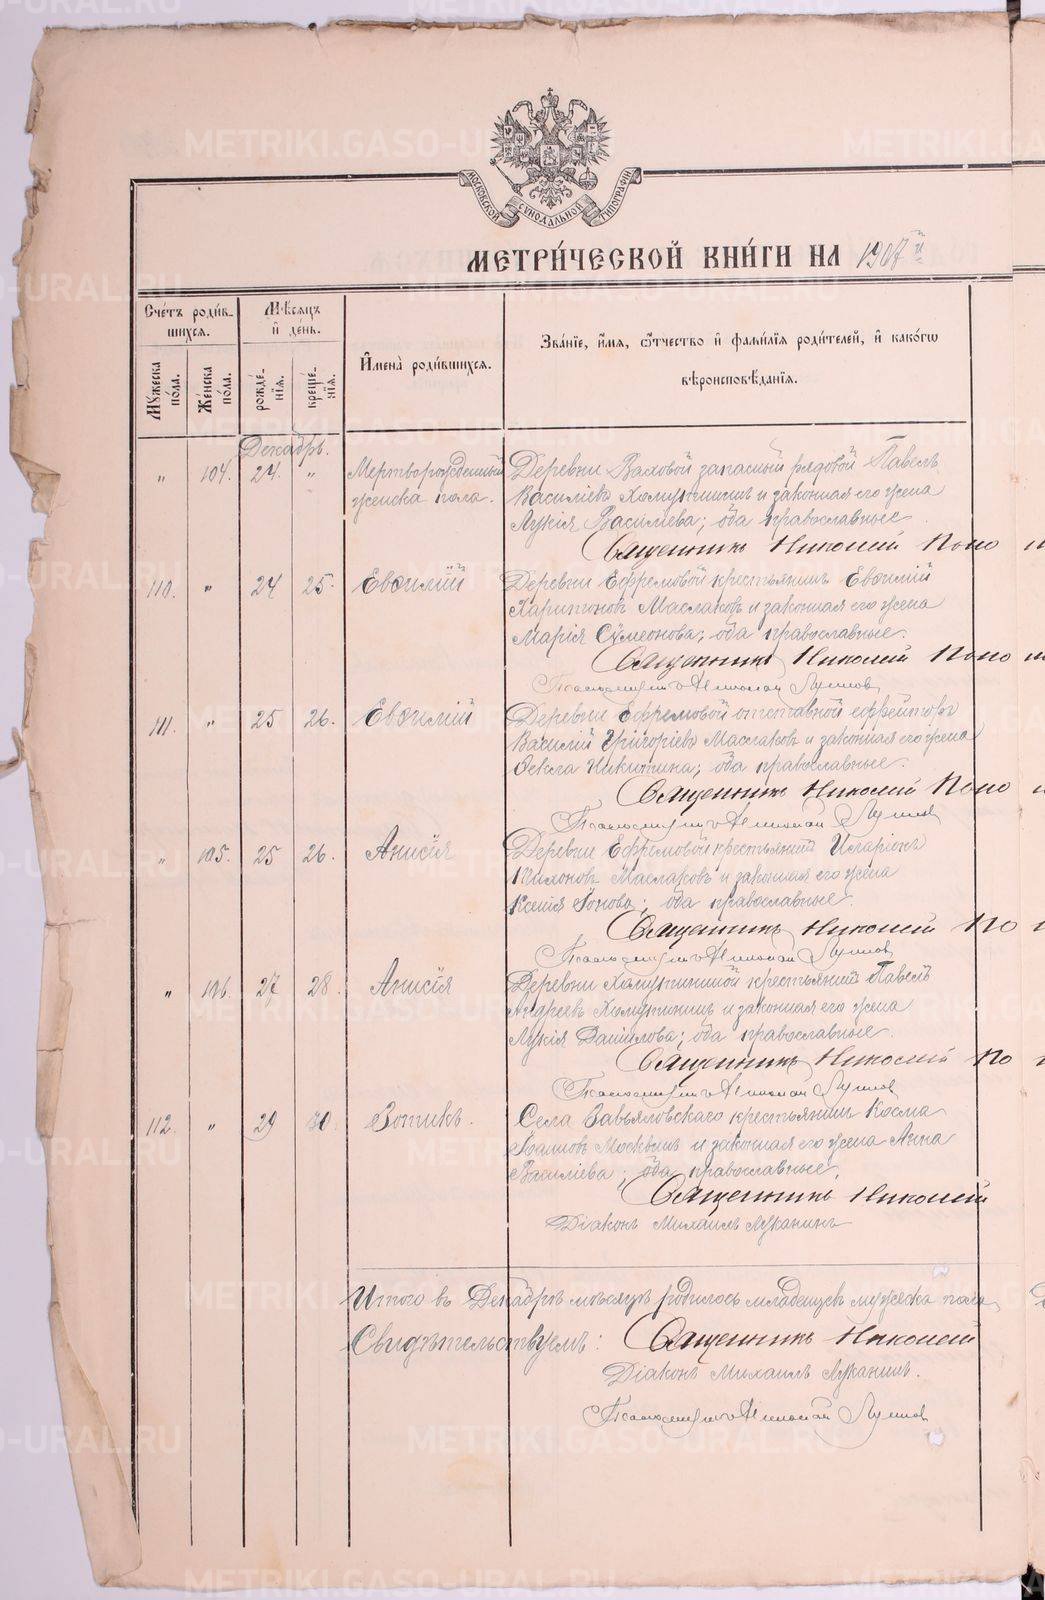 МОСКОВСКОЙ СѴНОДАЛЬНОЙ ТИПОГРАФІИ
МЕТРИ́ЧЕСКОЙ КНИ́ГИ НА 1907й
Сче́тъ роди́в-
шихся.
Мѣсяцъ
и де́нь.
Имена̀ роди́вшихся.
Зва́нїе, и́мя, ѻ҆́тчество и фами́лїя роди́телей, и како́гѡ
вѣроисповѣ́данїя.
Му́жеска
по́ла.
Же́нска
по́ла.
рожде́-
нїя.
креще́-
нїя.
Декабрь.
„ 104. 24. „ Мертворожденный Деревни Ваховой запасный рядовой Павелъ
женска пола. Василіевъ Хомутининъ и законная его жена
Лукія Василіева; оба православные.
Священникъ Николай Попо
110. „ 24 25. Евѳимій Деревни Ефремовой крестьянинъ Евѳимій
Харитоновъ Маслаковъ и законная его жена
Марія Сѵмеонова; оба православные.
Священникъ Николай Попо
Псаломщикъ
111. „ 25 26. Евѳимій Деревни Ефремовой отставной ефрейторъ
Василій Григоріевъ Маслаковъ и законная его жена
Ѳекла Никитина; оба православные.
Священникъ Николай Попо
Псаломщикъ
„ 105. 25 26. Анисія Деревни Ефремовой крестьянинъ Иларіонъ
Тихоновъ Маслаковъ и законная его жена
Ксенія Іонова; оба православные.
Священникъ Николай По
Псаломщикъ
„ 106. 27 28. Анисія Деревни Хомутининой крестьянинъ Павелъ
Андреевъ Хомутининъ и законная его жена
Лукія Даніилова; оба православные.
Священникъ Николай По
Псаломщикъ
112. „ 29 30. Зотикъ. Села Завьяловскаго крестьянинъ Косма
Іоанновъ Москвинъ и законная его жена Анна
Василіева; оба православные.
Священникъ Николай
Діаконъ Михаилъ Луканинъ
Итого въ Декабрѣ мѣсяцѣ родилось младенцевъ мужеска пола
Свидѣтельствуемъ: Священникъ Николай
Діаконъ Михаилъ Луканинъ.
Псаломщикъ
METRIKI.GASO-URAL.RU